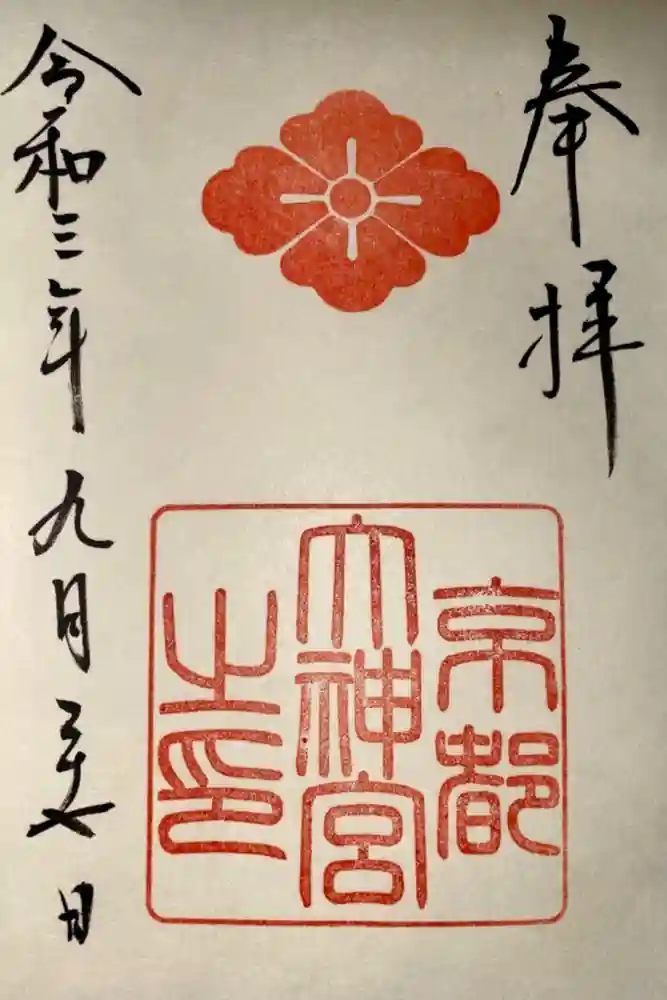 奉拝
京都
大神宮
之印
令和三年九月二十七日